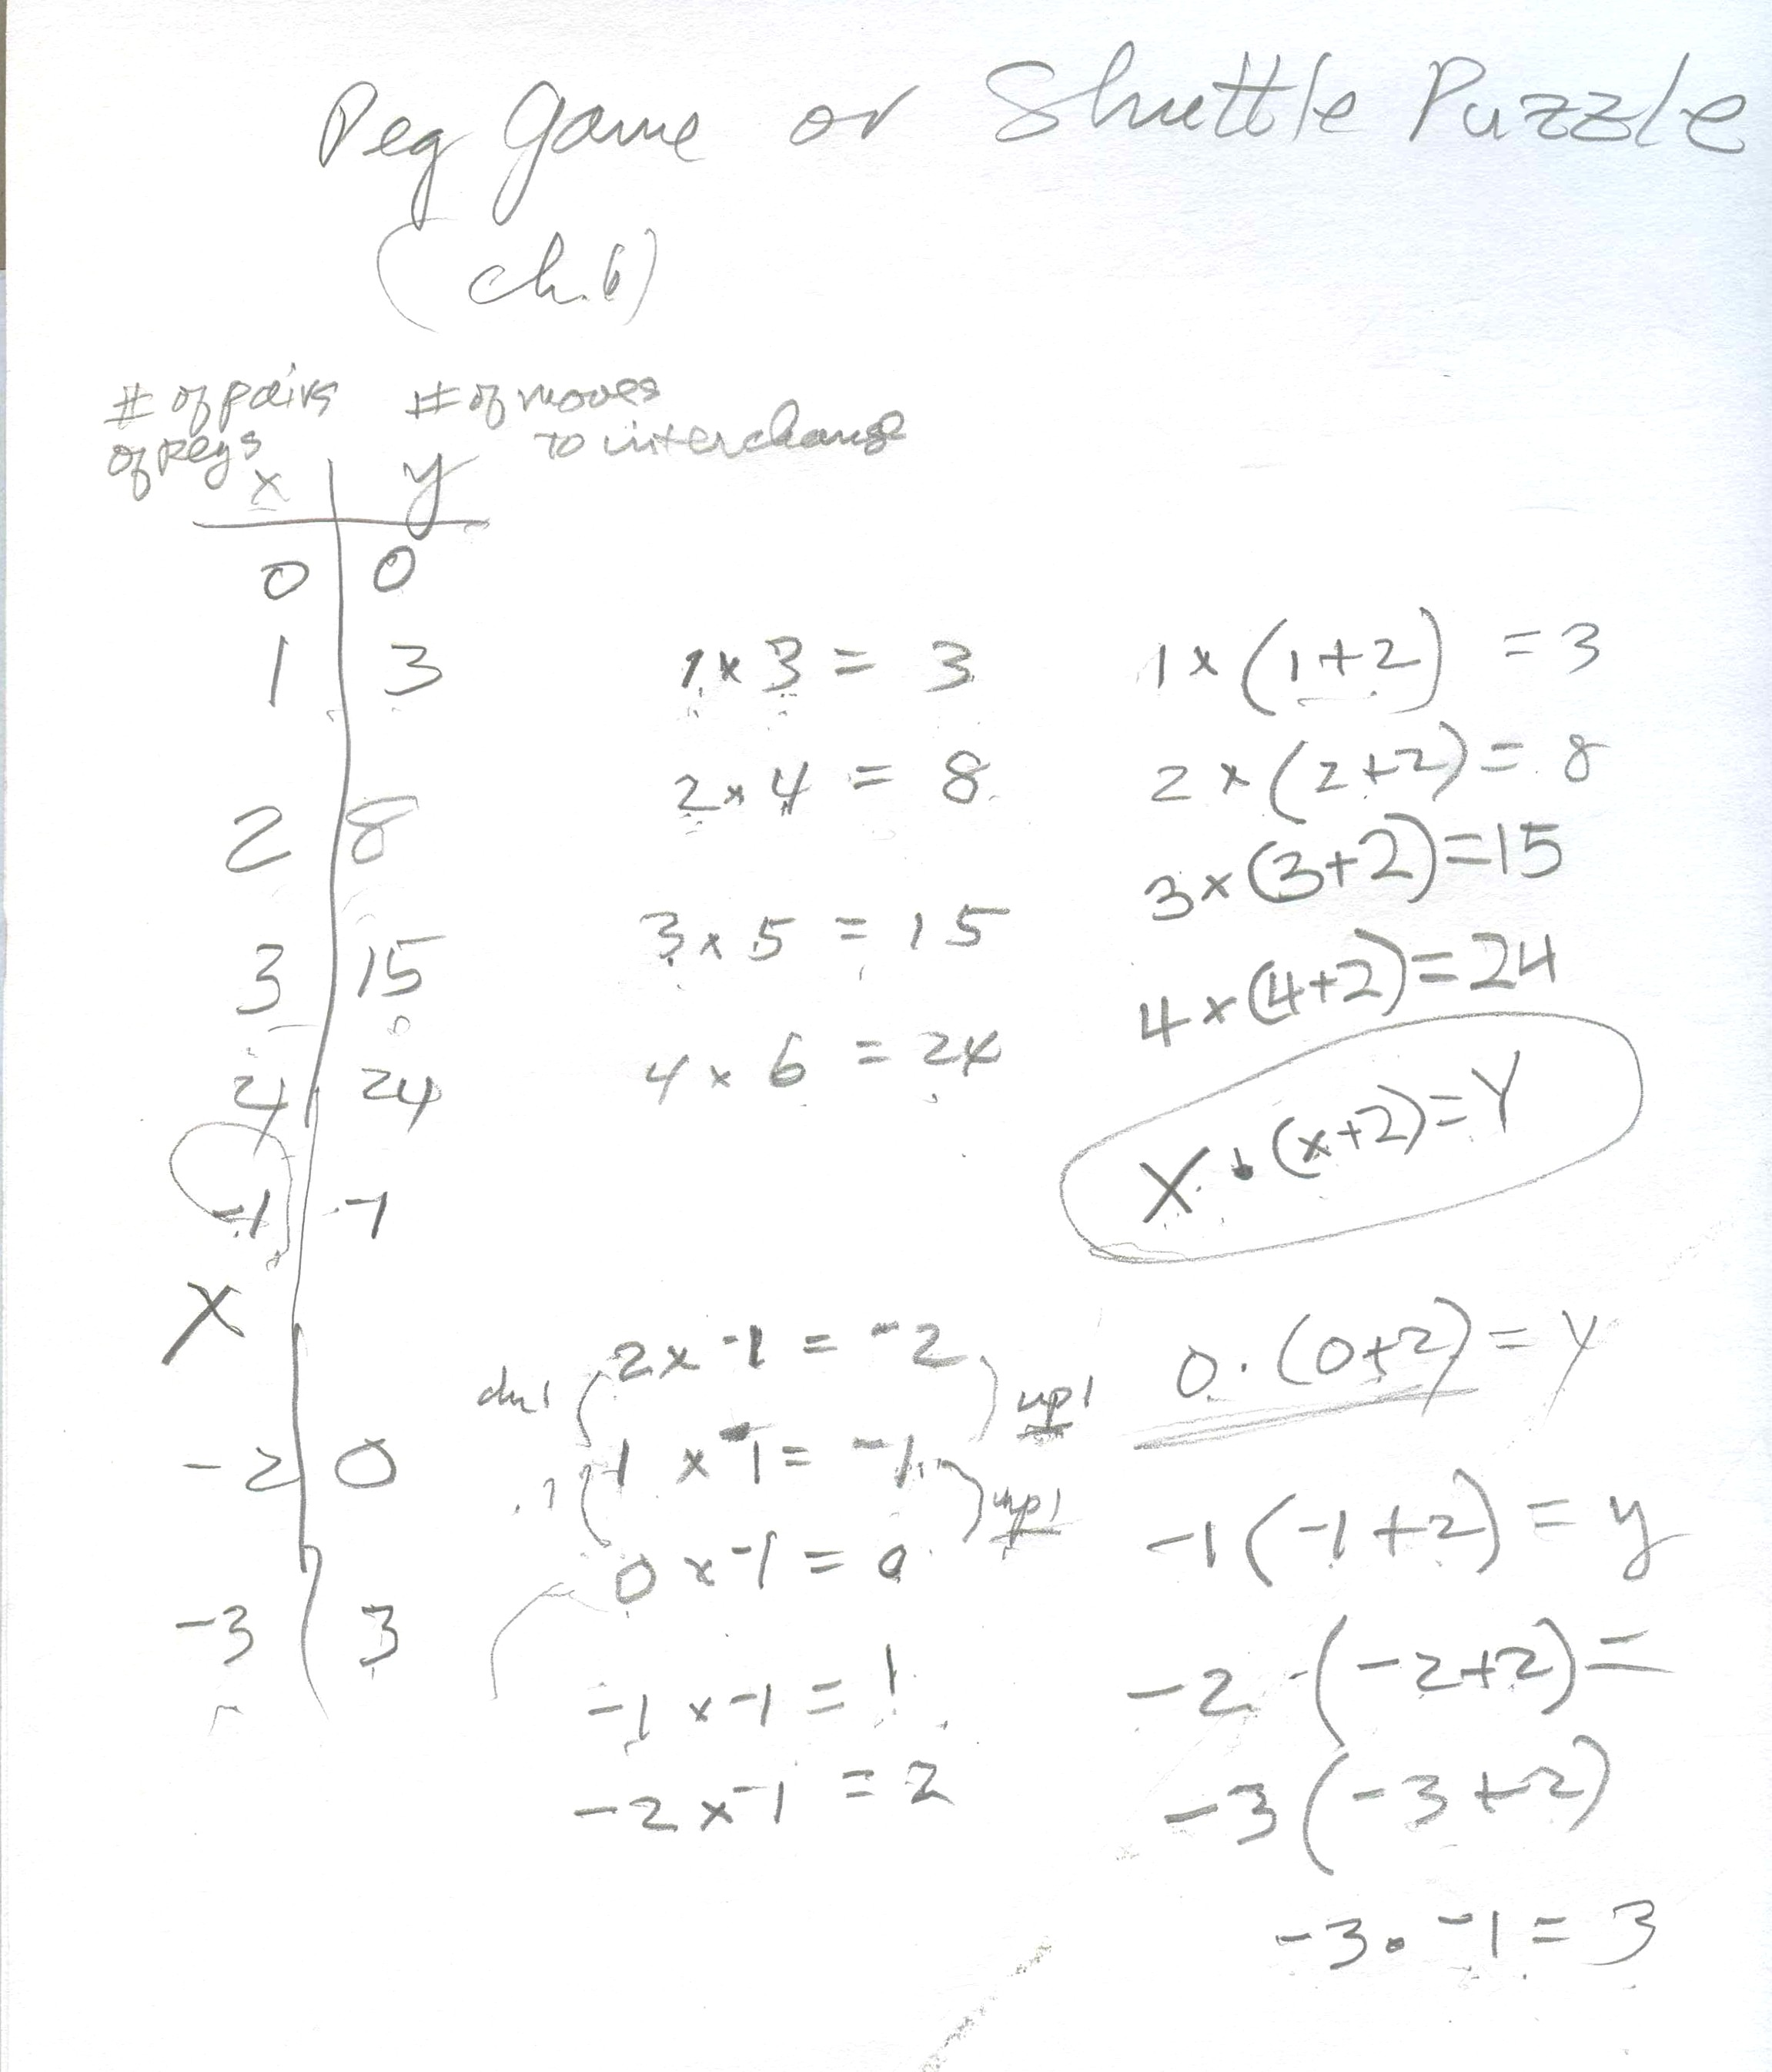 Peg Game or Shuttle Puzzle
(ch.6)
# of pairs of pegs
# of moves to interchange
x y
0 0
1 3
2 8
3 15
4 24
-1 -1
X
-2 0
-3 3
1 x 3 = 3
2 x 4 = 8
3 x 5 = 15
4 x 6 = 24
1 x (1+2) = 3
2 x (2+2) = 8
3 x (3+2) = 15
4 x (4+2) = 24
X • (x+2) = Y
2 x -1 = -2
1 x -1 = -1
0 x -1 = 0
-1 x -1 = 1
-2 x -1 = 2
up 1
up 1
0 · (0+2) = Y
-1 (-1+2) = y
-2 · (-2+2) =
-3 (-3+2)
-3 • -1 = 3